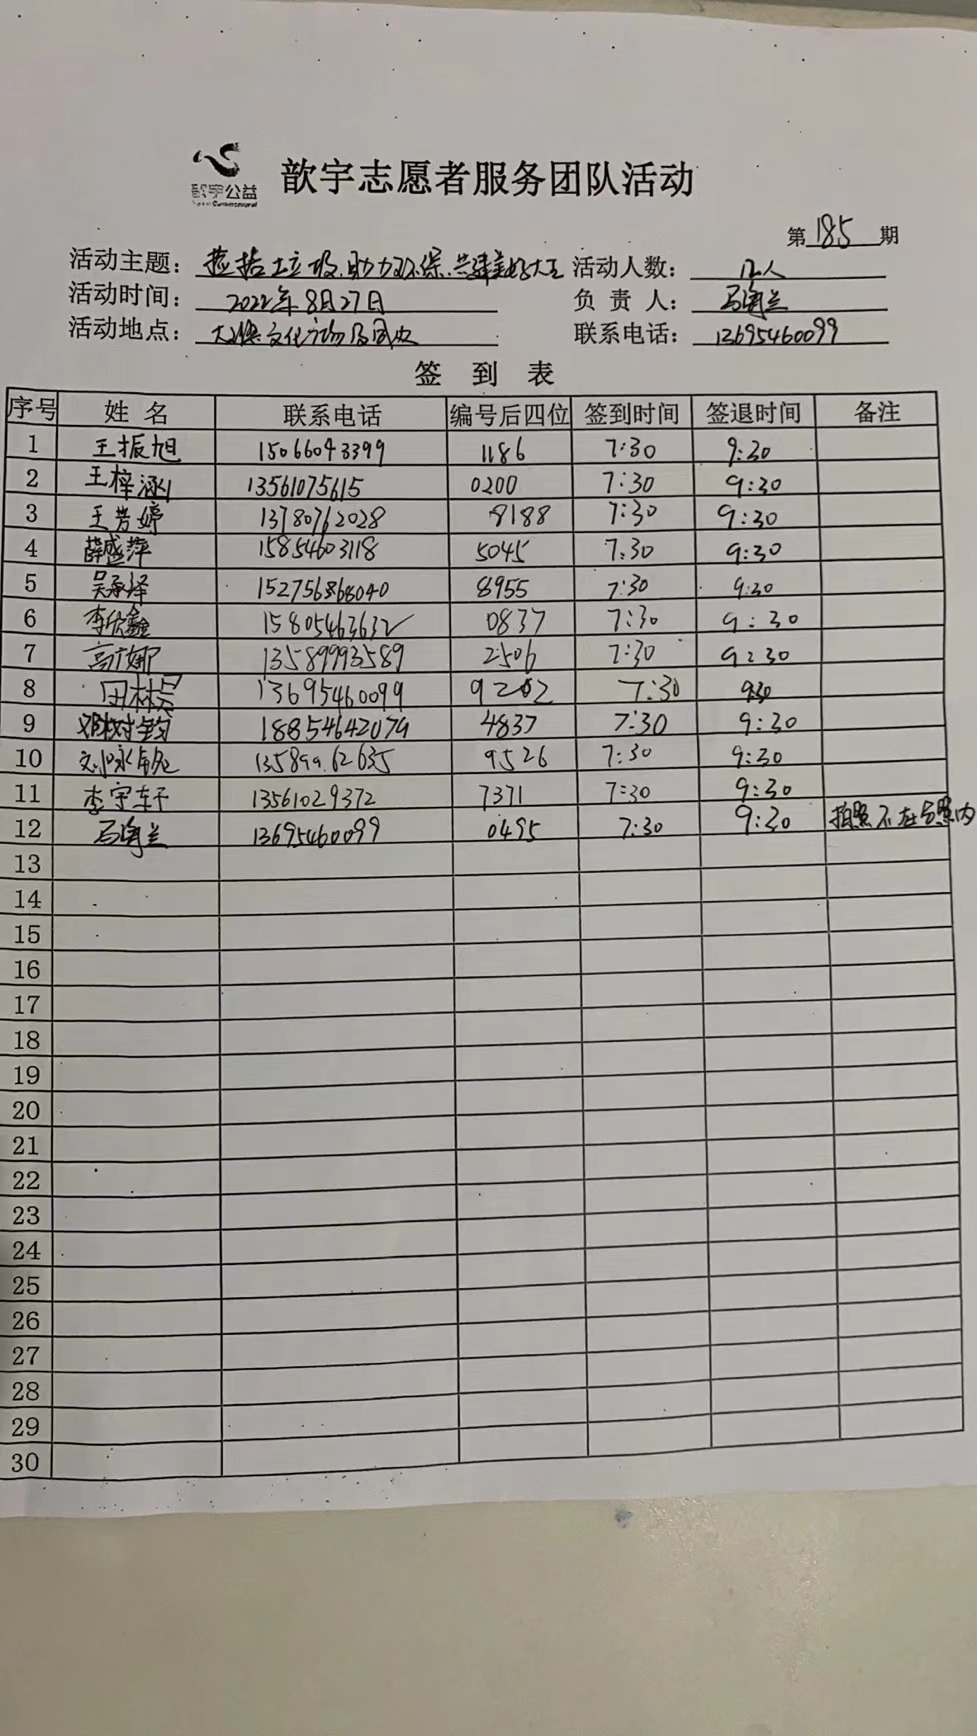 歆宇公益
歆宇志愿者服务团队活动
第185期
活动主题：捡拾垃圾.助力环保.共建美好大王 活动人数：12人
活动时间：2022年8月27日 负责人：
活动地点：文化广场及周边 联系电话：13695460099
签到表
序号 姓名 联系电话 编号后四位 签到时间 签退时间 备注
1 王振旭 15066043399 1186 7:30 9:30
2 王梓涵 13561075615 0200 7:30 9:30
3 王芳婷 13780762028 8188 7:30 9:30
4 薛盛萍 15854603118 5045 7:30 9:30
5 吴承泽 8955 7:30 9:30
6 李欣鑫 15805463632 0837 7:30 9:30
7 高娜 13589993589 2506 7:30 9:30
8 13695460099 9202 7:30 9:30
9 18854642079 4837 7:30 9:30
10 13589962635 9526 7:30 9:30
11 李宇轩 13561029372 7371 7:30 9:30
12 13695460099 0495 7:30 9:30 拍照不在合照内
13
14
15
16
17
18
19
20
21
22
23
24
25
26
27
28
29
30